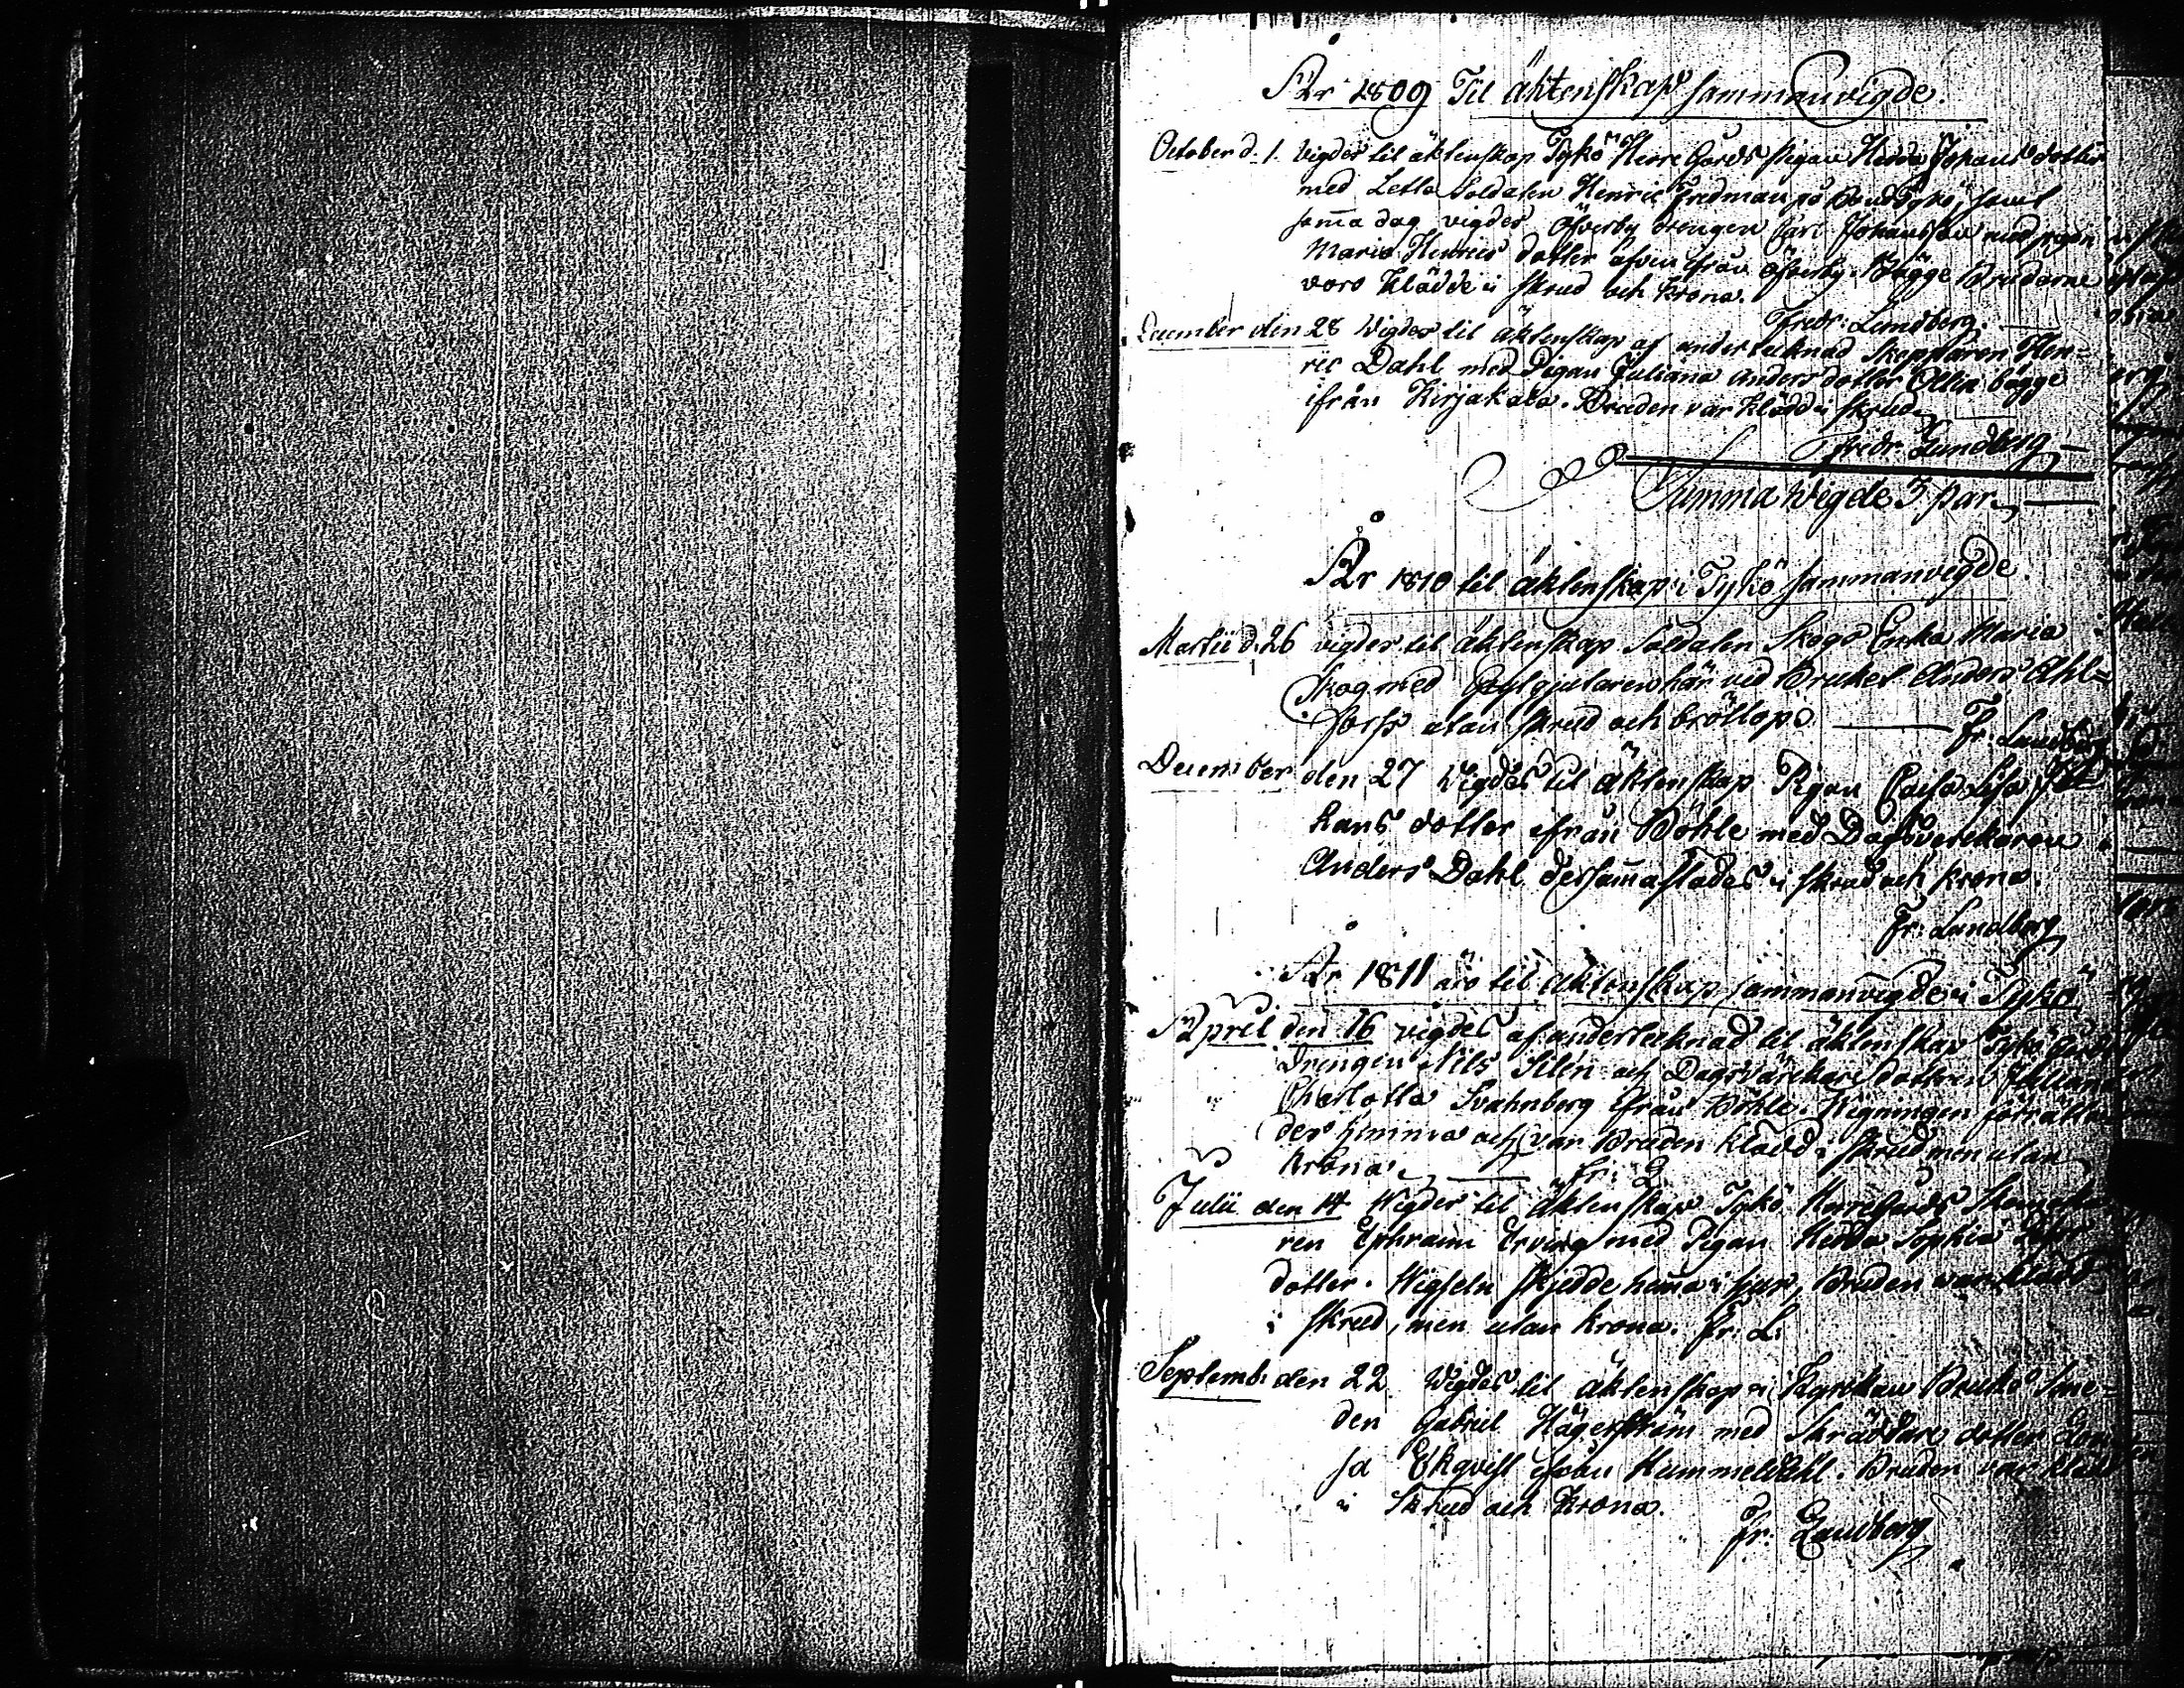 År 1809 Til äktenskap sammanvigde.
October d. 1. Vigdes til äktenskap Tykö Herre Gårds pigan Hedda Johans dotter
med Letla Soldaten Henric Fredman på Bond Tykö, samt
sam̄a dag vigdes Öfverby drengen Carl Johansson med pigan
Maria Henrics dotter äfven från Öfverby. Bägge Brudarne
voro klädde i skrud och krona.
Fredr: Lundberg.
December den 28 Vigdes til äktenskap af undertecknad Skepparen Hen=
ric Dahl med Pigan Juliana Anders dotter bägge
ifrån Kirjakala. Bruden var klädd i skrud
Fredr. Lundberg
Summa Wigde 3 par
År 1810 til äktenskap i Tykö sammanvigde.
Martii d. 26 vigdes til äktenskap Soldaten Skogs Enka Maria
Skog med gjutaren här vid Bruket Anders Ahl=
forss utan skrud och bröllop
Fr. Lundberg
December den 27 Vigdes til äktenskap Pigan Cajsa Lisa Jo=
hans dotter ifrån Böhle med Dagsverckaren
Anders Dahl dersam̄astädes i skrud och krona.
Fr: Lundberg
År 1811 äro til äktenskap sammanvigde i Tykö
April den 16 vigdes af undertecknad til äktenskap Tykö
Drengen Nils Silén och Dagsvärckare dottren
Charlotta Svahnberg ifrån Böhle. Wigningen förrättades
der hemma och var Bruden klädd i skrud men utan
krona. Fr: L
Julii den 14 Wigdes til äktenskap Tykö Herregårds
ren Ephraim Erving med Pigan Hedda Sophia
dotter. Wigseln skjedde hem̄a i hus, Bruden war klädd
i skrud, men utan krona. Fr: L:
Septemb: den 22 Vigdes til äktenskap i Kyrckan Bruks Sme=
den Gabriel Hägerström med Skräddare dotter
sa Ekqvist ifrån Hummeldahl. Bruden var klädd
i Skrud och Krona.
Fr. Lundberg